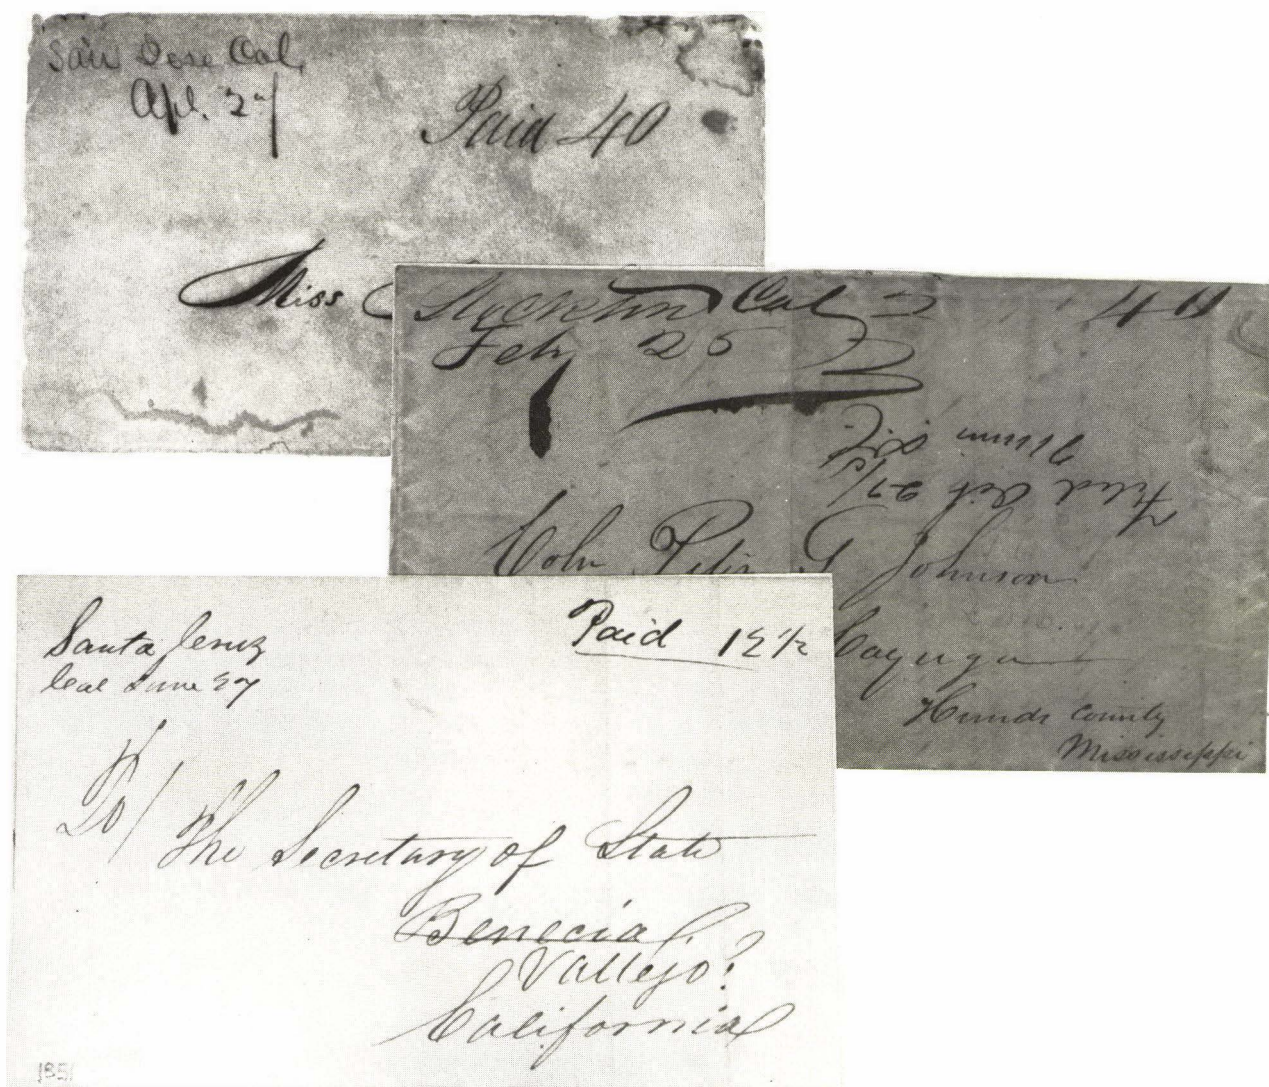 San Jose Cal,
Apl. 27
Paid 40
Miss
Stockton Cal
Feby 25
40
Filed Oct 27/51
Colo Peter G Johnson
Cayuga
Hinds County
Mississippi
Santa Cruz
Cal June 27
Paid 12 1/2
To/
The Secretary of State
Benecia
Vallejo?
California
1851